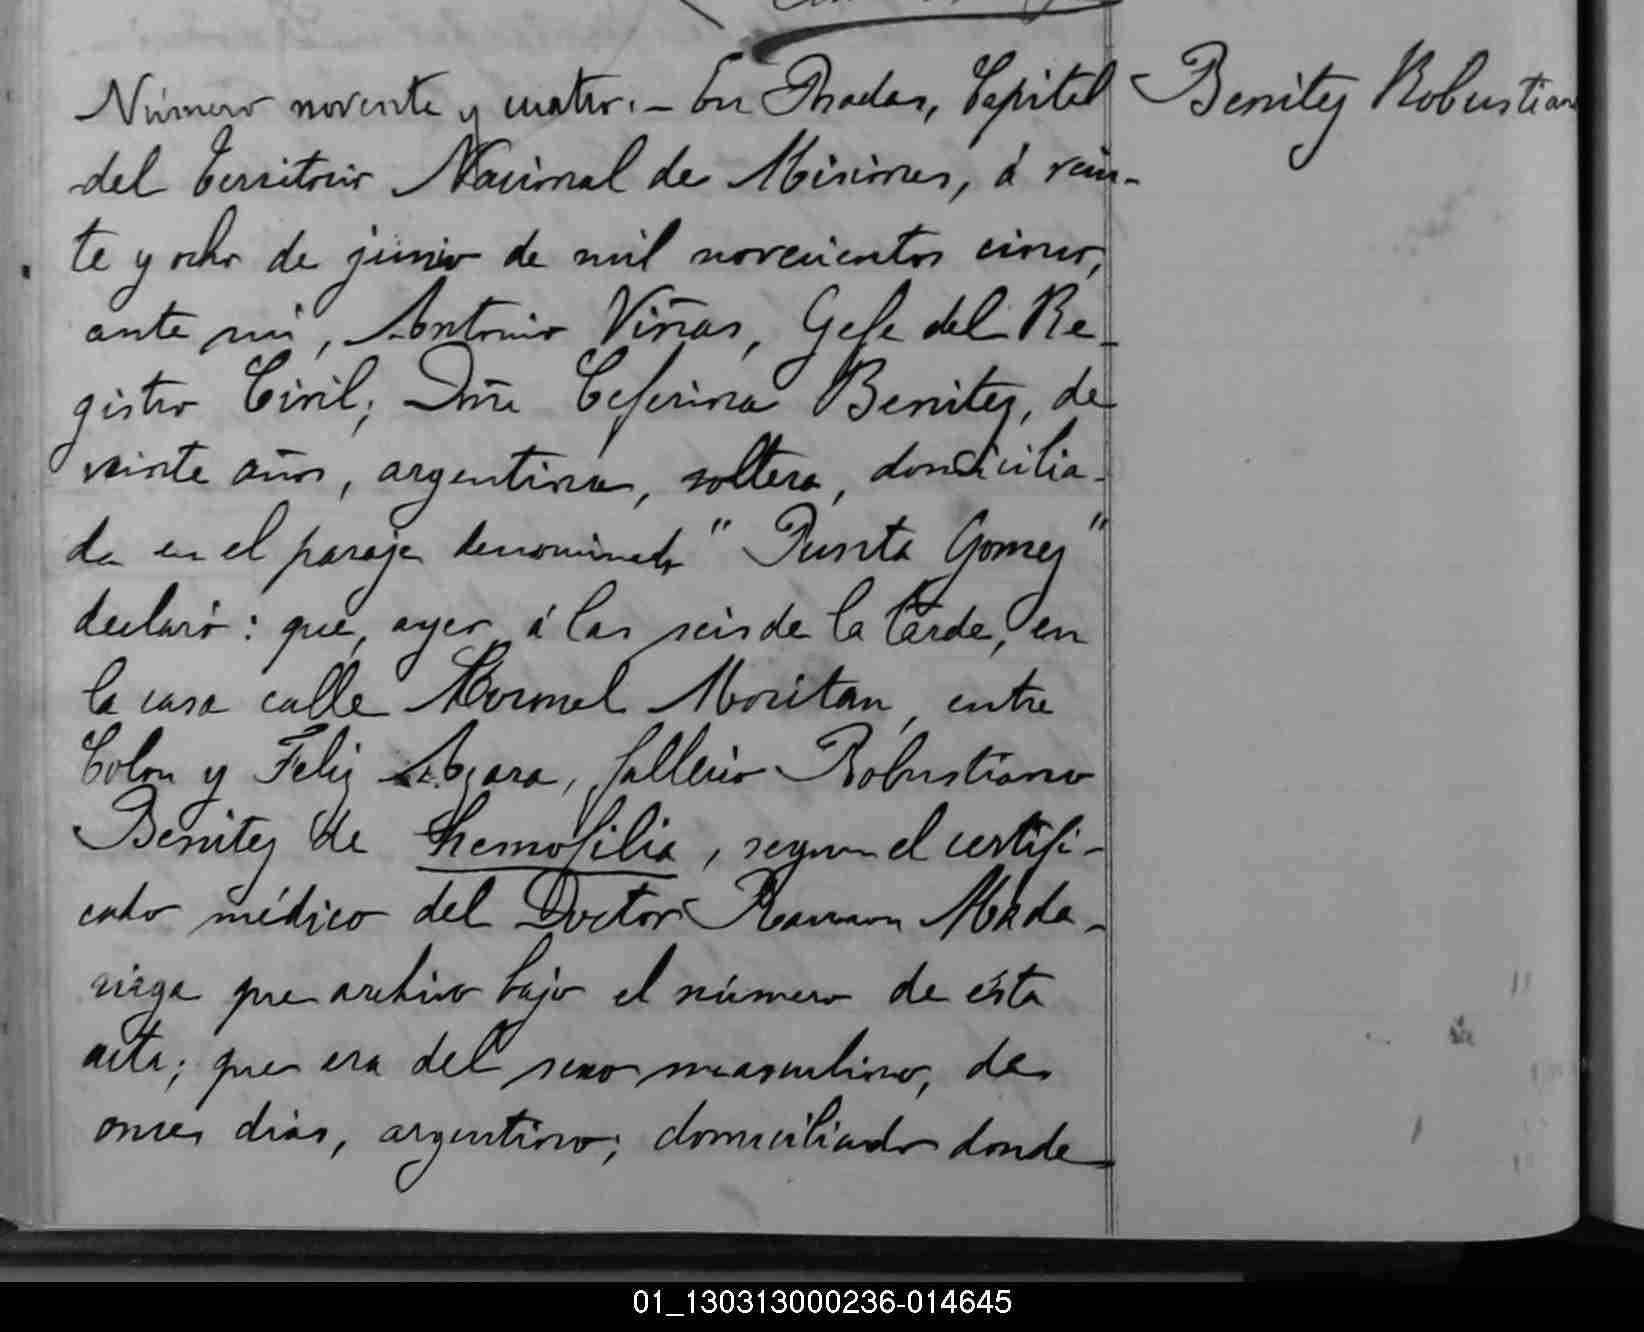 Número noventa y cuatro.- En Posadas, Capital
del Territorio Nacional de Misiones, á vein-
te y ocho de junio de mil novecientos cinco,
ante mi, Antonio Viñas, Gefe del Re-
gistro Civil; Dña Ceferina Benitez, de
veinte años, argentina, soltera, domicilia-
da en el paraje denominado "Punta Gomez"
declaró: que, ayer, á las seis de la tarde, en
la casa calle Moritan, entre
Colon y Feliz Azara, falleció Robustiano
Benitez de hemofilia, segun el certifi-
cado médico del Doctor Ramon Mada-
riaga que archivo bajo el número de ésta
acta; que era del sexo masculino, de
onces dias, argentino; domiciliado donde
Benitez Robustiano
01_130313000236-014645